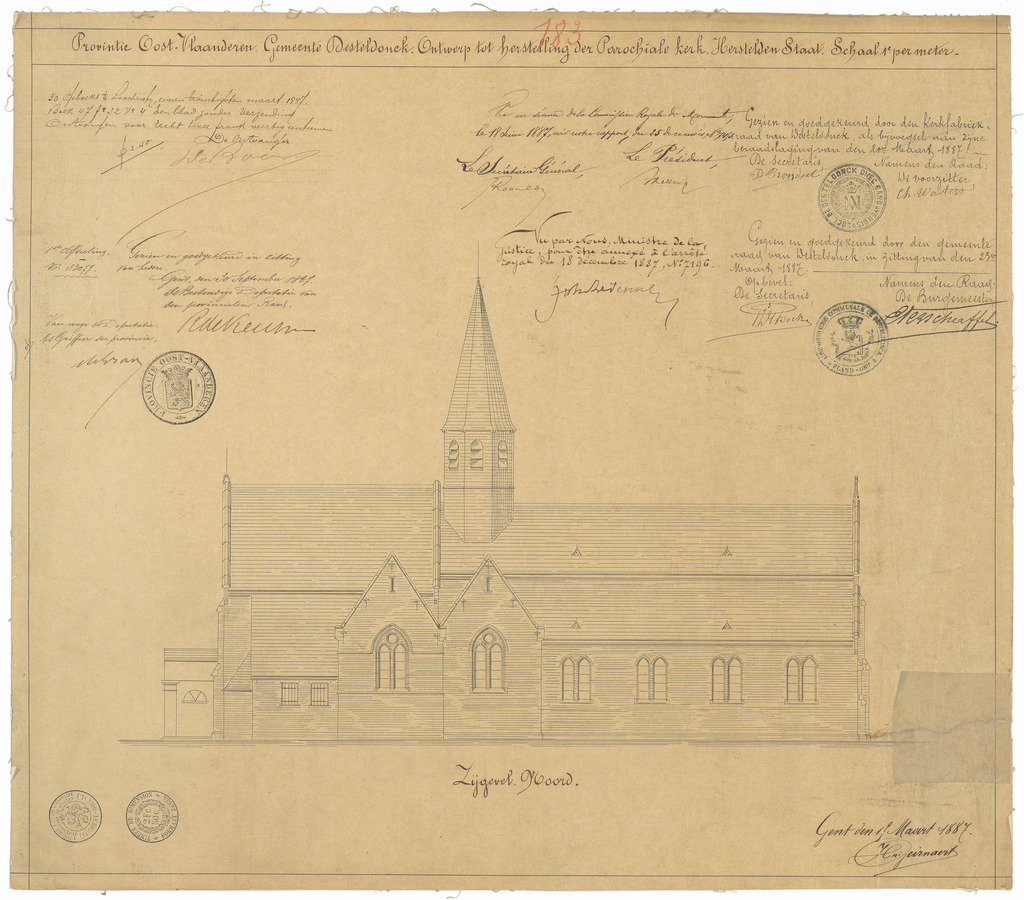 183
Provintie Oost-Vlaanderen. Gemeente Desteldonck. Ontwerp tot herstelling der Parochiale kerk. Herstelden Staat. Schaal 1c per meter.
maart 1887.
Boek 47 fo 52 Vo 4 den blad zonder verzending
Ontvangen voor recht twee frank veertig centiemen
De Ontvanger
f 2.40
Vu en séance de la Commission Royale des Monuments,
le 18 Juin 1887, notre rapport, du 25
Le Secrétaire Général,
Le Président,
Gezien en goedgekeurd door den Kerkfabriek-
raad van Desteldonck, als bijvoegsel aan zijne
beraadslaging van den 20e Maart 1887.
De Secretaris,
Namens den Raad:
De voorzitter
1ste Afdeeling.
No 33077.
Gezien en goedgekeurd in zitting
van heden.
Gent, den 30 September 1887.
De Bestendige Deputatie van
den provincialen Raad.
Van wege de Deputatie:
de Griffier der provincie,
PROVINCIE OOST-VLAANDEREN
Vu par Nous, Ministre de la
Justice, pour être annexé à l'arrêté
royal du 18 décembre 1887, No 7196.
Gezien en goedgekeurd door den gemeente
raad van Desteldonck, in zitting van den 23e
Maart 1887.
Op bevel:
De Secretaris,
Namens den Raad:
De Burgemeester
Zijgevel. Noord.
TIMBRE DE DIMENSION
Gent den 15 Maart 1887.